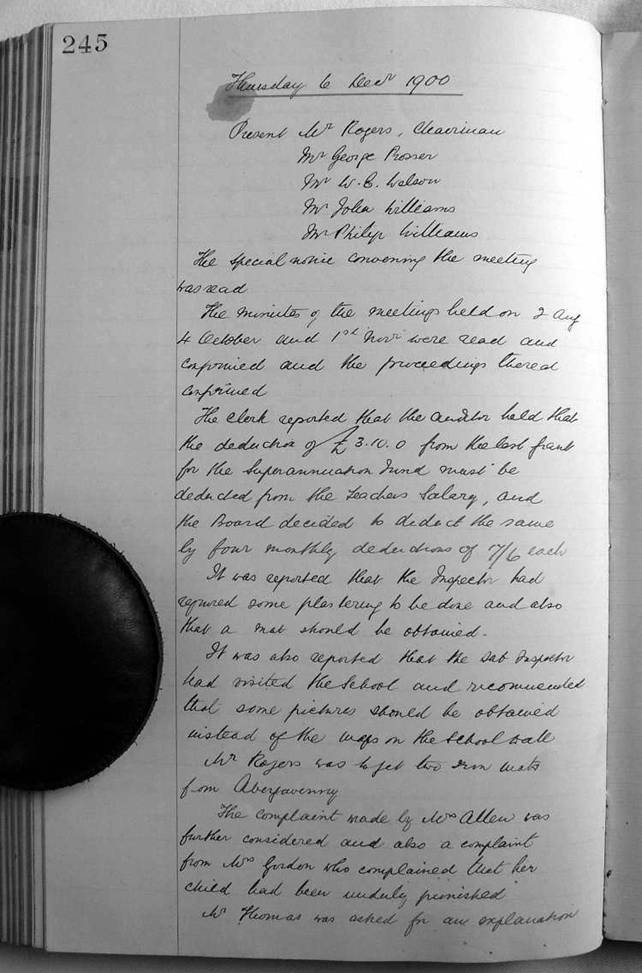 245
Thursday 6 Decr 1900
Present Mr Rogers, Chairman
Mr George Prosser
Mr W. C. Watson
Mr John Williams
Mr Philip Williams
The special notice convening the meeting
was read
The minutes of the meetings held on 2 Aug
4 October and 1st Novr were read and
confirmed and the proceedings thereof
confirmed
The Clerk reported that the auditor held that
the deduction of £3.10.0 from the last grant
for the Superannuation Fund must be
deducted from the Teachers Salary, and
the Board decided to deduct the same
by four monthly deductions of 17/6 each
It was reported that the Inspector had
required some plastering to be done and also
that a mat should be obtained.
It was also reported that the Sub Inspector
had visited the School and recommended
that some pictures should be obtained
instead of the maps on the School wall
Mr Rogers was to get two iron mats
from Abergavenny
The complaint made by Mrs Allen was
further considered and also a complaint
from Mrs Gordon who complained that her
child had been unduly punished
Mr Thomas was asked for an explanation